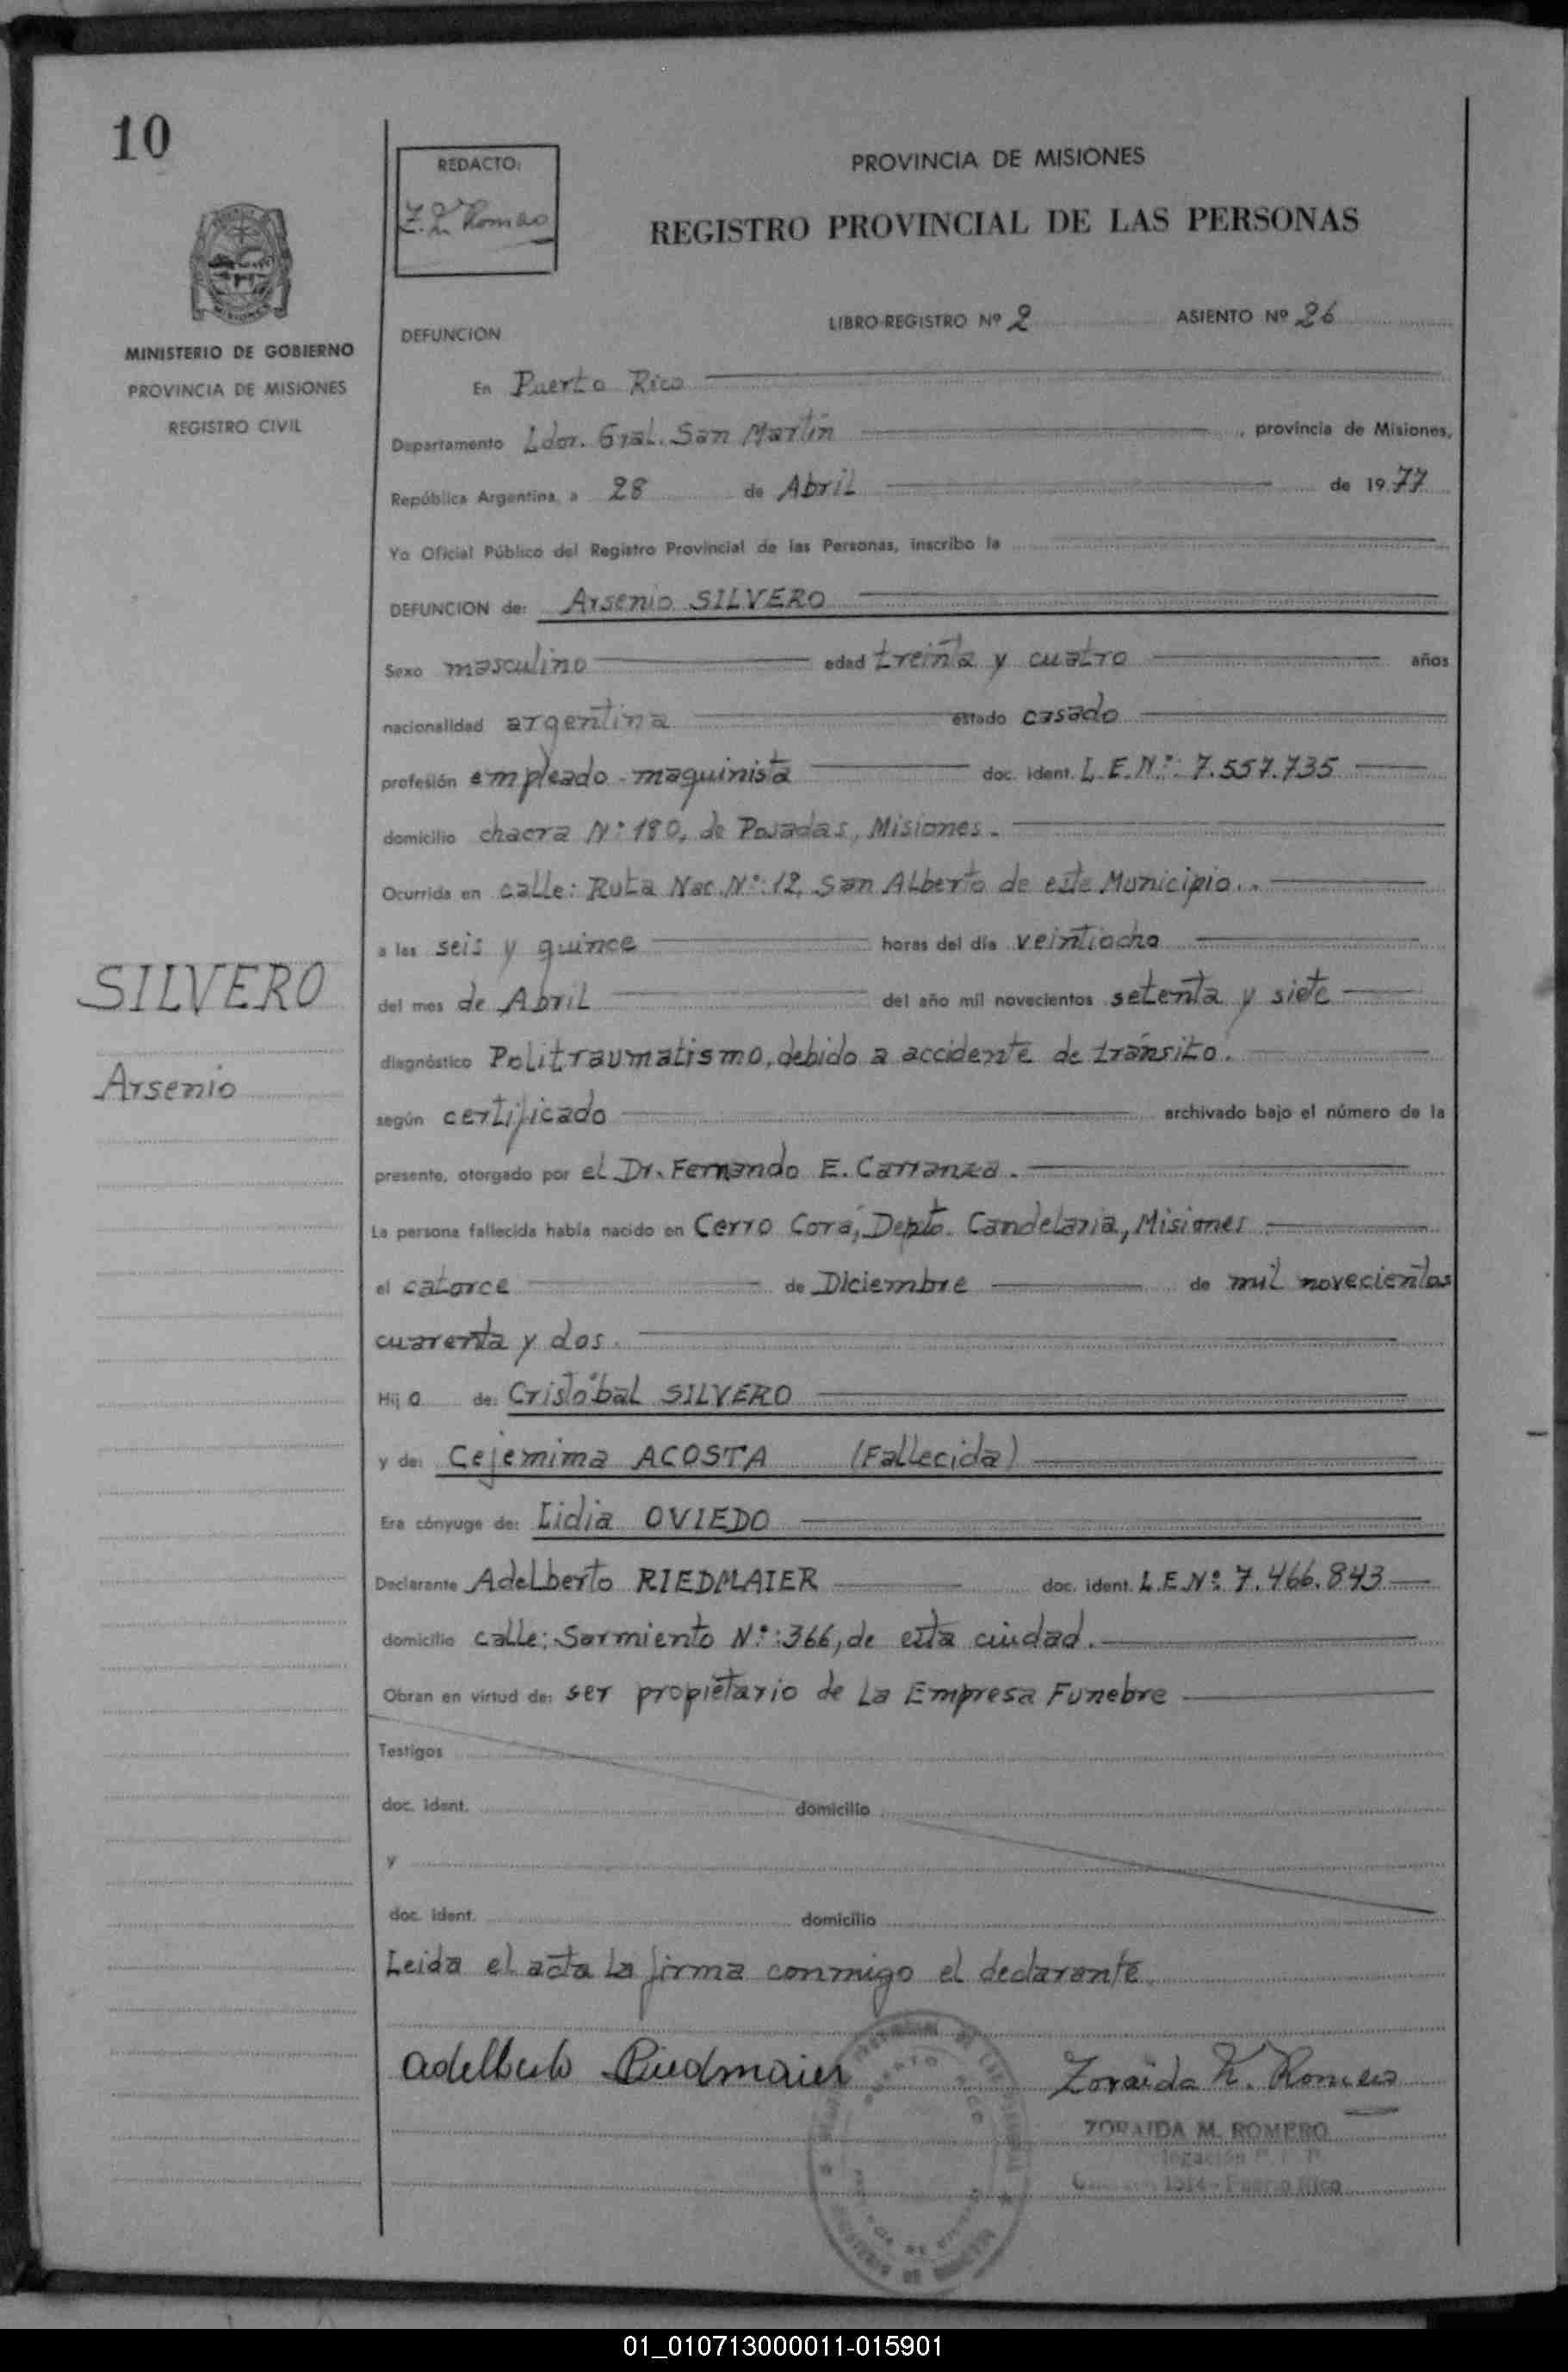 10
REDACTO:
Romero
PROVINCIA DE MISIONES
REGISTRO PROVINCIAL DE LAS PERSONAS
MINISTERIO DE GOBIERNO
PROVINCIA DE MISIONES
REGISTRO CIVIL
DEFUNCION LIBRO-REGISTRO Nº 2 ASIENTO Nº 26
En Puerto Rico
Departamento Ldor. Gral. San Martín, provincia de Misiones,
República Argentina, a 28 de Abril de 1977
Yo Oficial Público del Registro Provincial de las Personas, inscribo la
DEFUNCION de: Arsenio SILVERO
Sexo masculino edad treinta y cuatro años
nacionalidad argentina estado casado
profesión empleado-maquinista doc. ident. L.E.Nº: 7.557.735
domicilio chacra Nº 180, de Posadas, Misiones.
Ocurrida en calle: Ruta Nac. Nº: 12, San Alberto de este Municipio..
a las seis y quince horas del día veintiocho
SILVERO
Arsenio
del mes de Abril del año mil novecientos setenta y siete
diagnóstico Politraumatismo, debido a accidente de tránsito.
según certificado archivado bajo el número de la
presente, otorgado por el Dr. Fernando E. Carranza.
La persona fallecida había nacido en Cerro Corá, Depto. Candelaria, Misiones
el catorce de Diciembre de mil novecientos
cuarenta y dos.
Hijo de: Cristóbal SILVERO
y de: Cejemima ACOSTA (Fallecida)
Era cónyuge de: Lidia OVIEDO
Declarante Adelberto RIEDMAIER doc. ident. L.E.Nº: 7.466.843
domicilio calle: Sarmiento Nº: 366, de esta ciudad.
Obran en virtud de: ser propietario de la Empresa Funebre
Testigos
doc. ident. domicilio
y
doc. ident. domicilio
Leida el acta la firma conmigo el declarante.
Adelberto Riedmaier Zoraida M. Romero
ZORAIDA M. ROMERO
Puerto Rico
01_010713000011-015901